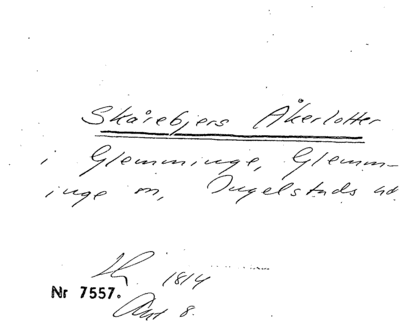 Skårebjers Åkerlotter
i Glemminge, Glemm-
inge sn, Ingelstads hd.
1814
Nr 7557.
Ant 8.